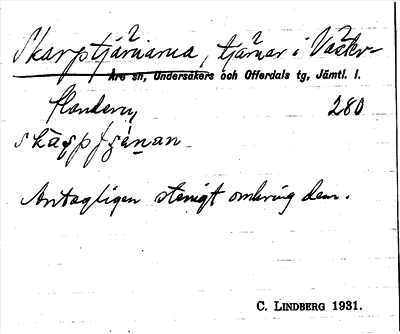 Skarptjärnarna, tjärnar i Västra
Åre sn, Undersåkers och Offerdals tg, Jämtl. l.
280
skạ̈rpʃä́nan
Antagligen stenigt omkring dem.
C. LINDBERG 1931.